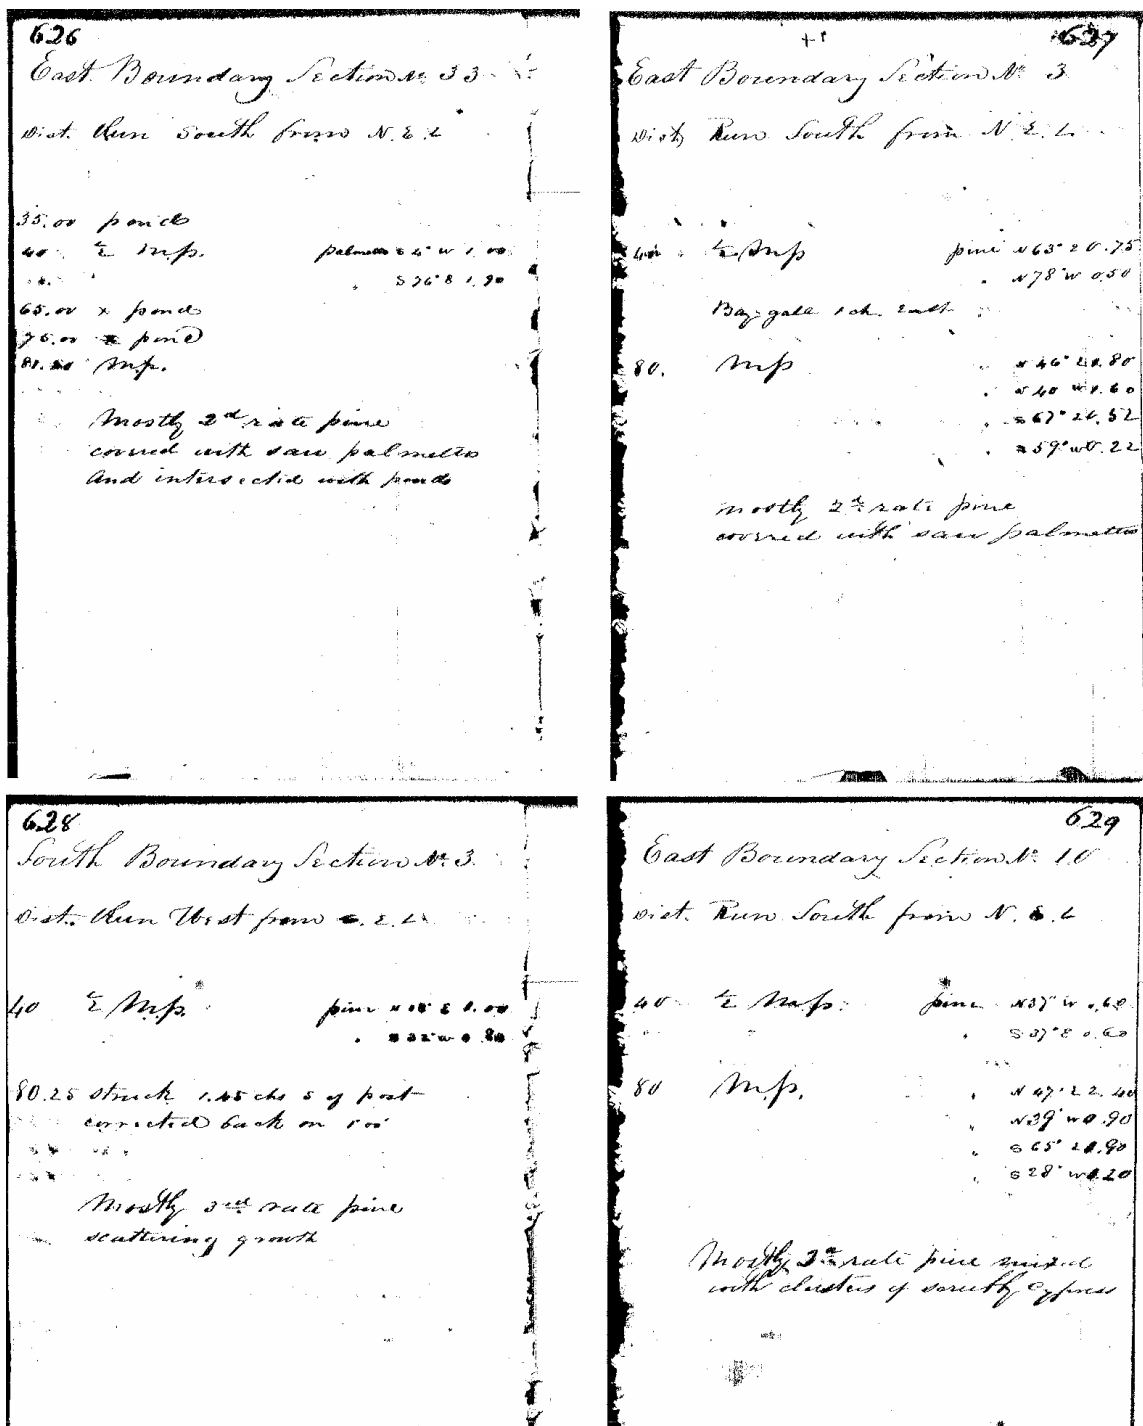 626
East Boundary Section No 33
Dist. Run South from N.E.C
35.00 pond
40 ½ M.p. palmetto S 4° W 1.00
" S 36° E 1.90
65.00 x pond
75.00 x pond
81.50 M.p.
Mostly 2d rate pine
covered with saw palmetto
And intersected with ponds
627
East Boundary Section No 3
Dist Run South from N.E.C
40 ½ M.p pine N 63° E 0.75
" N 78° W 0.50
Bay gall 1 ch. East
80. M.p " N 46° E 0.80
" N 40 W 1.60
" S 67° E 1.52
" S 59° W 0.22
mostly 2d rate pine
covered with saw palmetto
628
South Boundary Section No 3.
Dist. Run West from S.E.C
40 ½ M.p. pine E
" W 0.80
80.25 struck 1.45 chs S of post
corrected back on
Mostly 3rd rate pine
scattering growth
629
East Boundary Section No 10
Dist. Run South from N.E.C
40 ½ M.p. pine N 37° W 0.60
" S 37° E 0.60
80 M.p. " N 47° E 2.40
" N 39° W 0.90
" S 65° E 0.90
" S 28° W 0.20
Mostly 3d rate pine mixed
with clusters of scrubby cypress